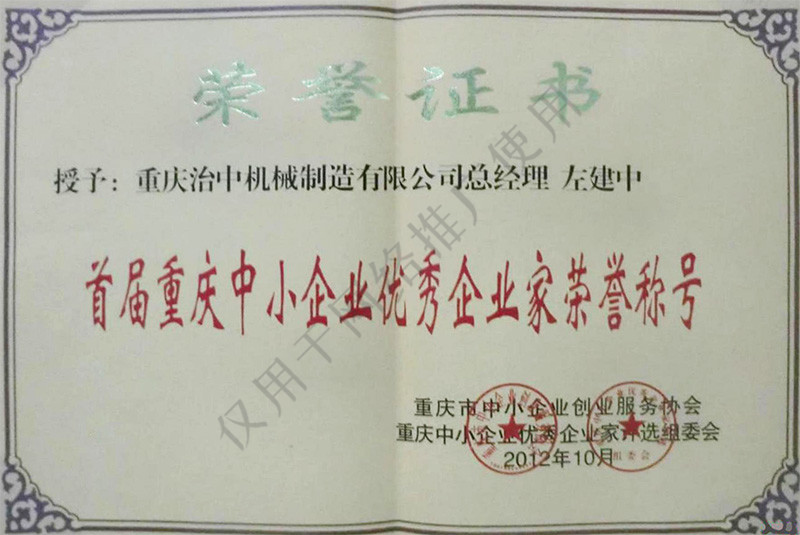 荣誉证书
授予：重庆治中机械制造有限公司总经理 左建中
首届重庆中小企业优秀企业家荣誉称号
重庆市中小企业创业服务协会
重庆中小企业优秀企业家评选组委会
2012年10月
组委会
仅用于网络推广使用